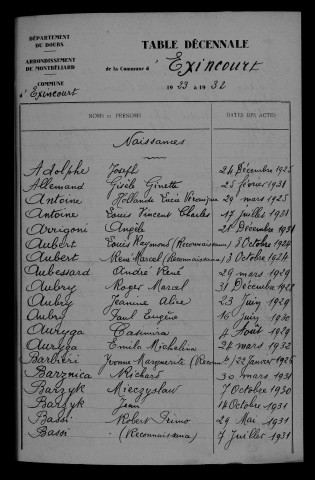 DÉPARTEMENT
DU DOUBS
ARRONDISSEMENT
DE MONTBÉLIARD
COMMUNE
d'Exincourt
TABLE DÉCENNALE
de la Commune d'Exincourt
1923 à 1932
NOMS ET PRÉNOMS DATES DES ACTES
Naissances
Adolphe Joseph 24 Décembre 1925
Allemand Gisèle Ginette 25 février 1931
Antoine Lucie Véronique 29 mars 1925
Antoine Louis Vincent Charles 17 juillet 1931
Arrigoni Angèle 21 Décembre 1931
Aubert Louis Raymond (Reconnaissance) 3 Octobre 1924
Aubert René Marcel (Reconnaissance) 3 Octobre 1924
Aubessard André René 29 mars 1929
Aubry Roger Marcel 31 Décembre 1928
Aubry Jeanine Alice 23 Juin 1929
Aubry Paul Eugène 10 Juin 1930
Auryga Casimira 4 Août 1929
Auryga Emila Michalina 24 mars 1932
Barbieri Yvonne Marguerite 22 Janvier
Barznica Richard 30 mars 1931
Barzyk Mieczyslaw 7 Octobre 1930
Barzyk Jean 14 Octobre 1931
Bassi Robert Primo 29 Mai 1931
Bassi (Reconnaissance) 7 Juillet 1931